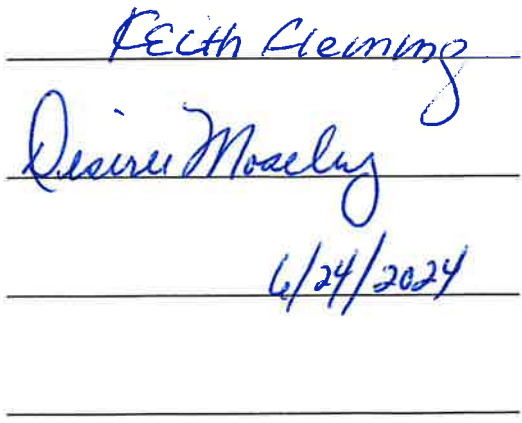 Keith Fleming
Desiree Moseley
6/24/2024